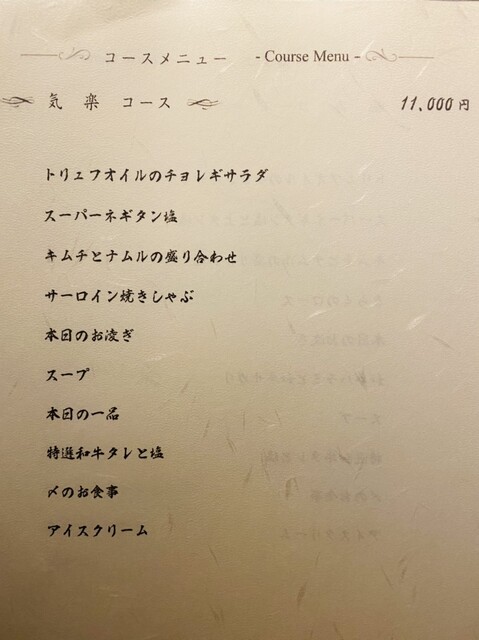 コースメニュー - Course Menu -
気楽 コース 11,000円
トリュフオイルのチョレギサラダ
スーパーネギタン塩
キムチとナムルの盛り合わせ
サーロイン焼きしゃぶ
本日のお凌ぎ
スープ
本日の一品
特選和牛タレと塩
〆のお食事
アイスクリーム